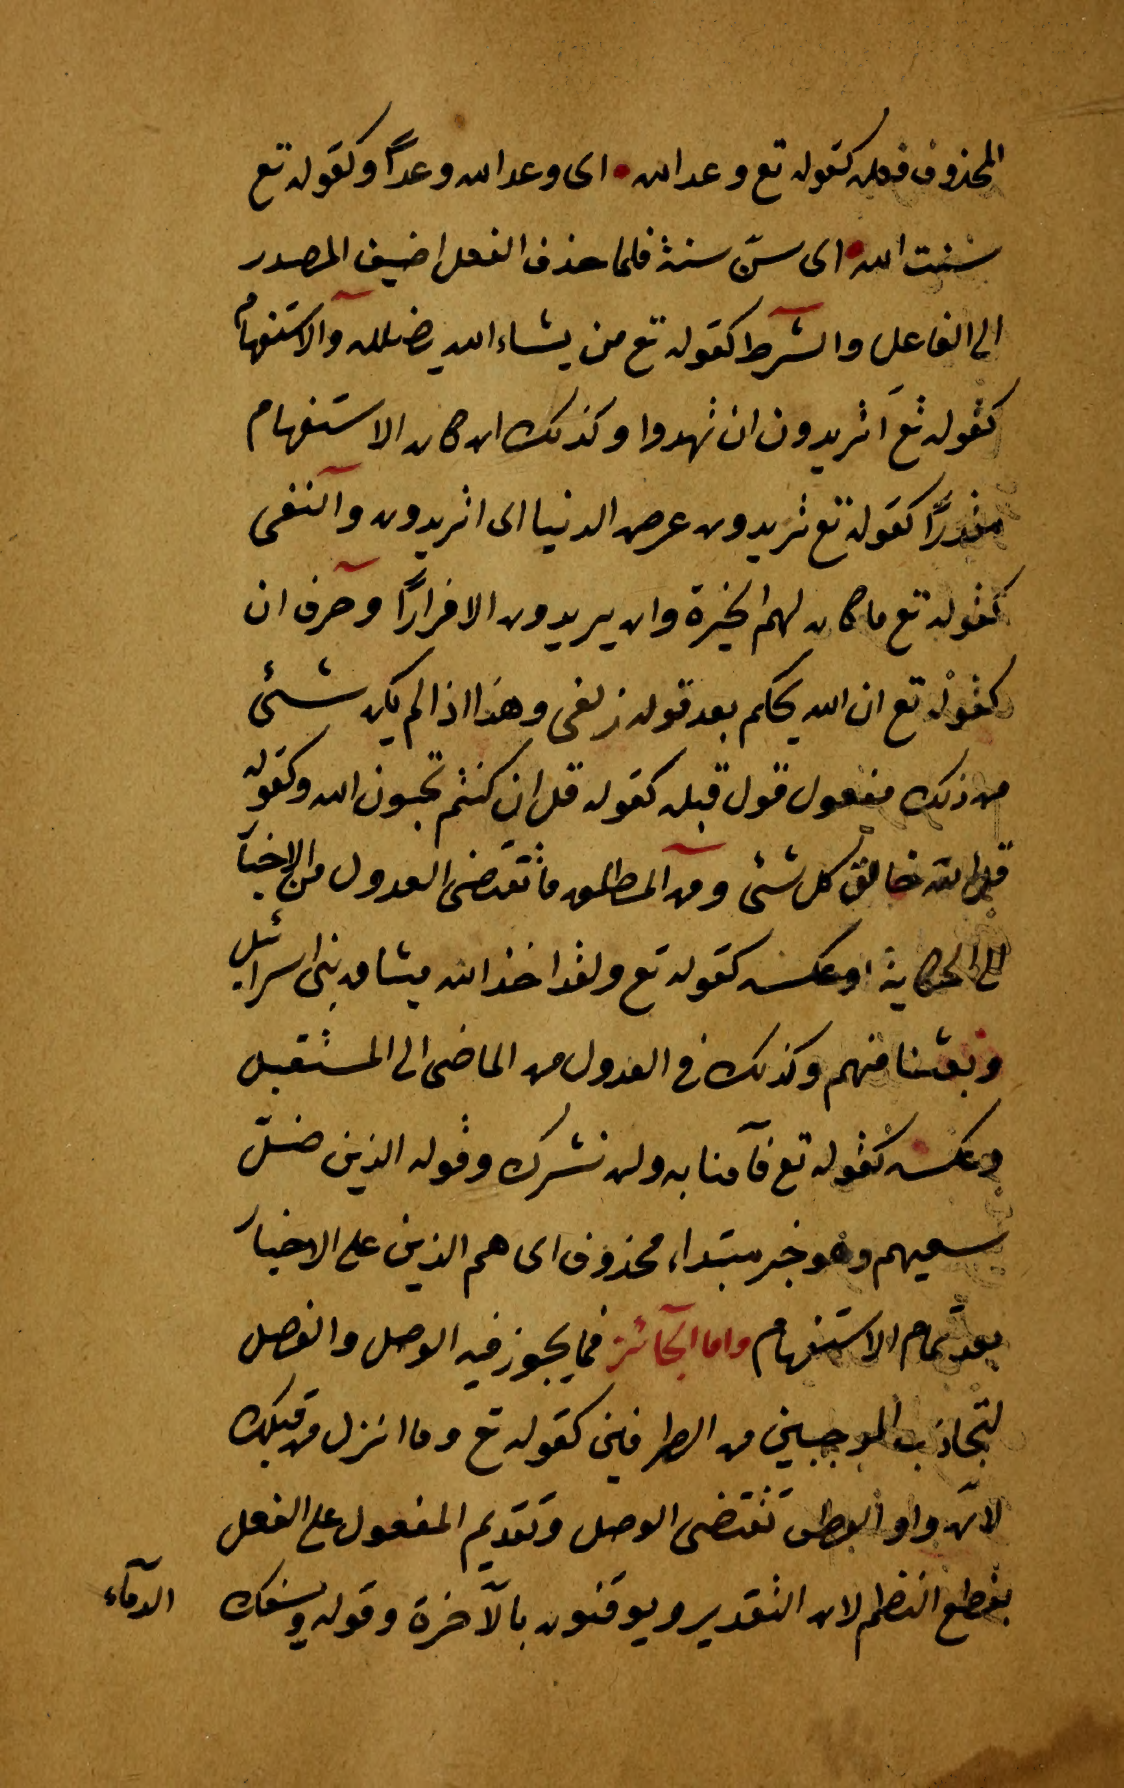 المحذوف فعله كقوله تع وعد الله • اى وعد الله وعداً وكقوله تع
سنت الله • اى سنّ سنة فلما حذف الفعل اضيف المصدر
الى الفاعل والشرط كقوله تع من يشاء الله يضلله والاستفهام
كقوله تع أتريدون ان تهدوا وكذلك ان كان الاستفهام
مقدرًا كقوله تع تريدون عرض الدنيا اى اتريدون والنفى
كقوله تع ما كان لهم الخيرة وان يريدون الا فرارًا وحرف ان
كقوله تع ان الله يحكم بعد قوله زلفى وهذا اذا لم يكن شئ
من ذلك مفعول قول قبله كقوله قل ان كنتم تحبون الله وكقوله
قل الله خالق كل شئ ومن المطلق ما تقتضى العدول من الاخبار
الى الحكاية او عكسه كقوله تع ولقد اخذ الله ميثاق بنى اسرائيل
وبعثنا منهم وكذلك فى العدول من الماضى الى المستقبل
وعكسه كقوله تع فآمنا به ولن نشرك وقوله الذين ضلّ
سعيهم وهو خبر مبتداء محذوف اى هم الذين على الاخبار
بعد تمام الاستفهام واما الجآئز فما يجوز فيه الوصل والفصل
لتجاذب الموجبين من الطرفين كقوله تع وما انزل من قبلك
لانّ واو العطف تقتضى الوصل وتقديم المفعول على الفعل
يقطع النظم لان التقدير ويوقنون بالآخرة وقوله ويسفك
الدمآء